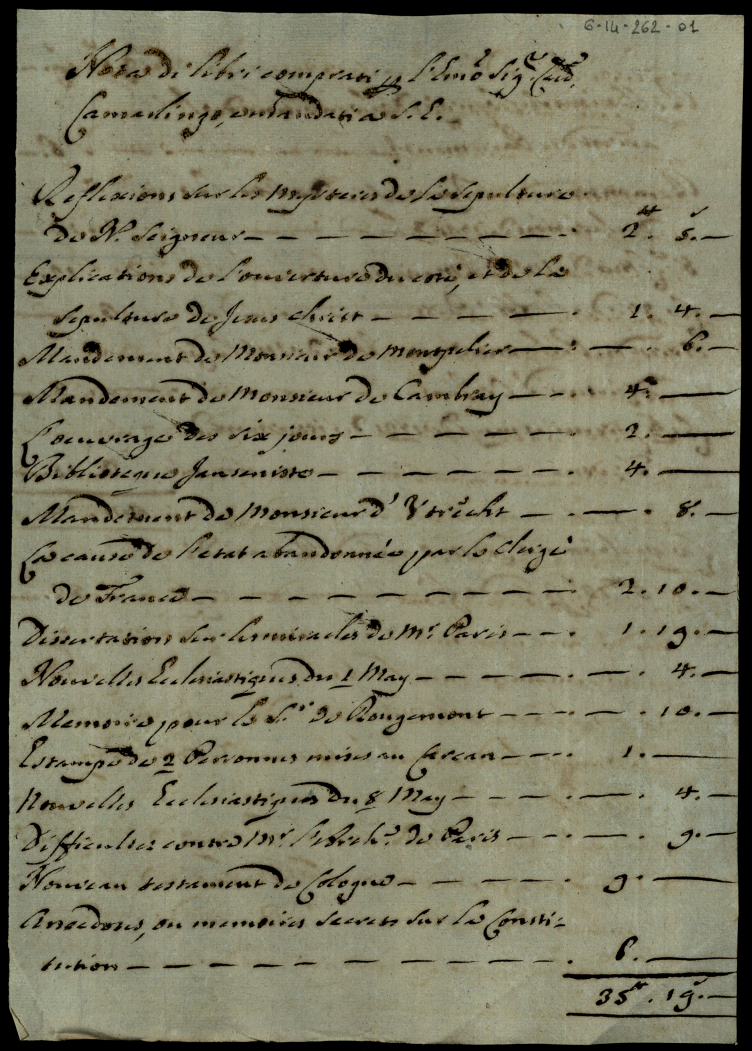 6-14-262-01
Nota di libri comprati p l'Emo Sigr Card.
Camerlingo, e mandati a S. E.
Reflexions sur les Mysteres de la sepulture
de N. Seigneur — 2.tt 5.s —
Explications de l'ouverture du coté, et de la
sepulture de Jesus Christ — 1. 4. —
Mandement de Monsieur de Montpelier — 6. —
Mandement de Monsieur de Cambray — 4. —
L'oeuvrage des six jours — 2. —
Biblioteque Janseniste — 4. —
Mandement de Monsieur d'Utrecht — 8. —
La cause de l'etat abandonnée par le Clergé
de France — 2. 10. —
Dissertations sur les miracles de Mr. Paris — 1. 19. —
Nouvelles Eclesiastiques du 1 May — 4. —
Memoire pour le Sr. de Rougemont — 10. —
Estampe de 2 Personnes mises au Carcan — 1. —
Nouvelles Eclesiastiques du 8 May — 4. —
Difficultez contre Mr. l'Arch. de Paris — 9. —
Nouveau testament de Cologne — 9. —
Anecdotes, ou memoires secrets sur la Consti=
tution — 6. —
35.tt 19.s —